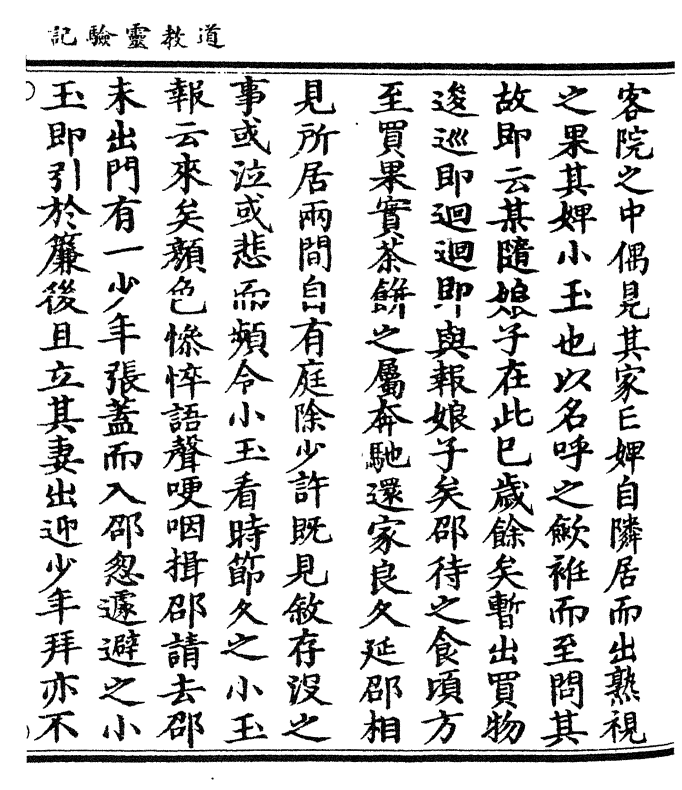 道教靈驗記
客院之中偶見其家亡婢自隣居而出熟視
之果其婢小玉也以名呼之歛袵而至問其
故即云某隨娘子在此已歲餘矣暫出買物
逡巡即迴迴即與報娘子矣邵待之食頃方
至買果實茶餅之屬奔馳還家良久延邵相
見所居兩間自有庭除少許既見敘存沒之
事或泣或悲而頻令小玉看時節久之小玉
報云來矣顏色慘悴語聲哽咽揖邵請去邵
未出門有一少年張蓋而入邵怱遽避之小
玉即引於簾後且立其妻出迎少年拜亦不